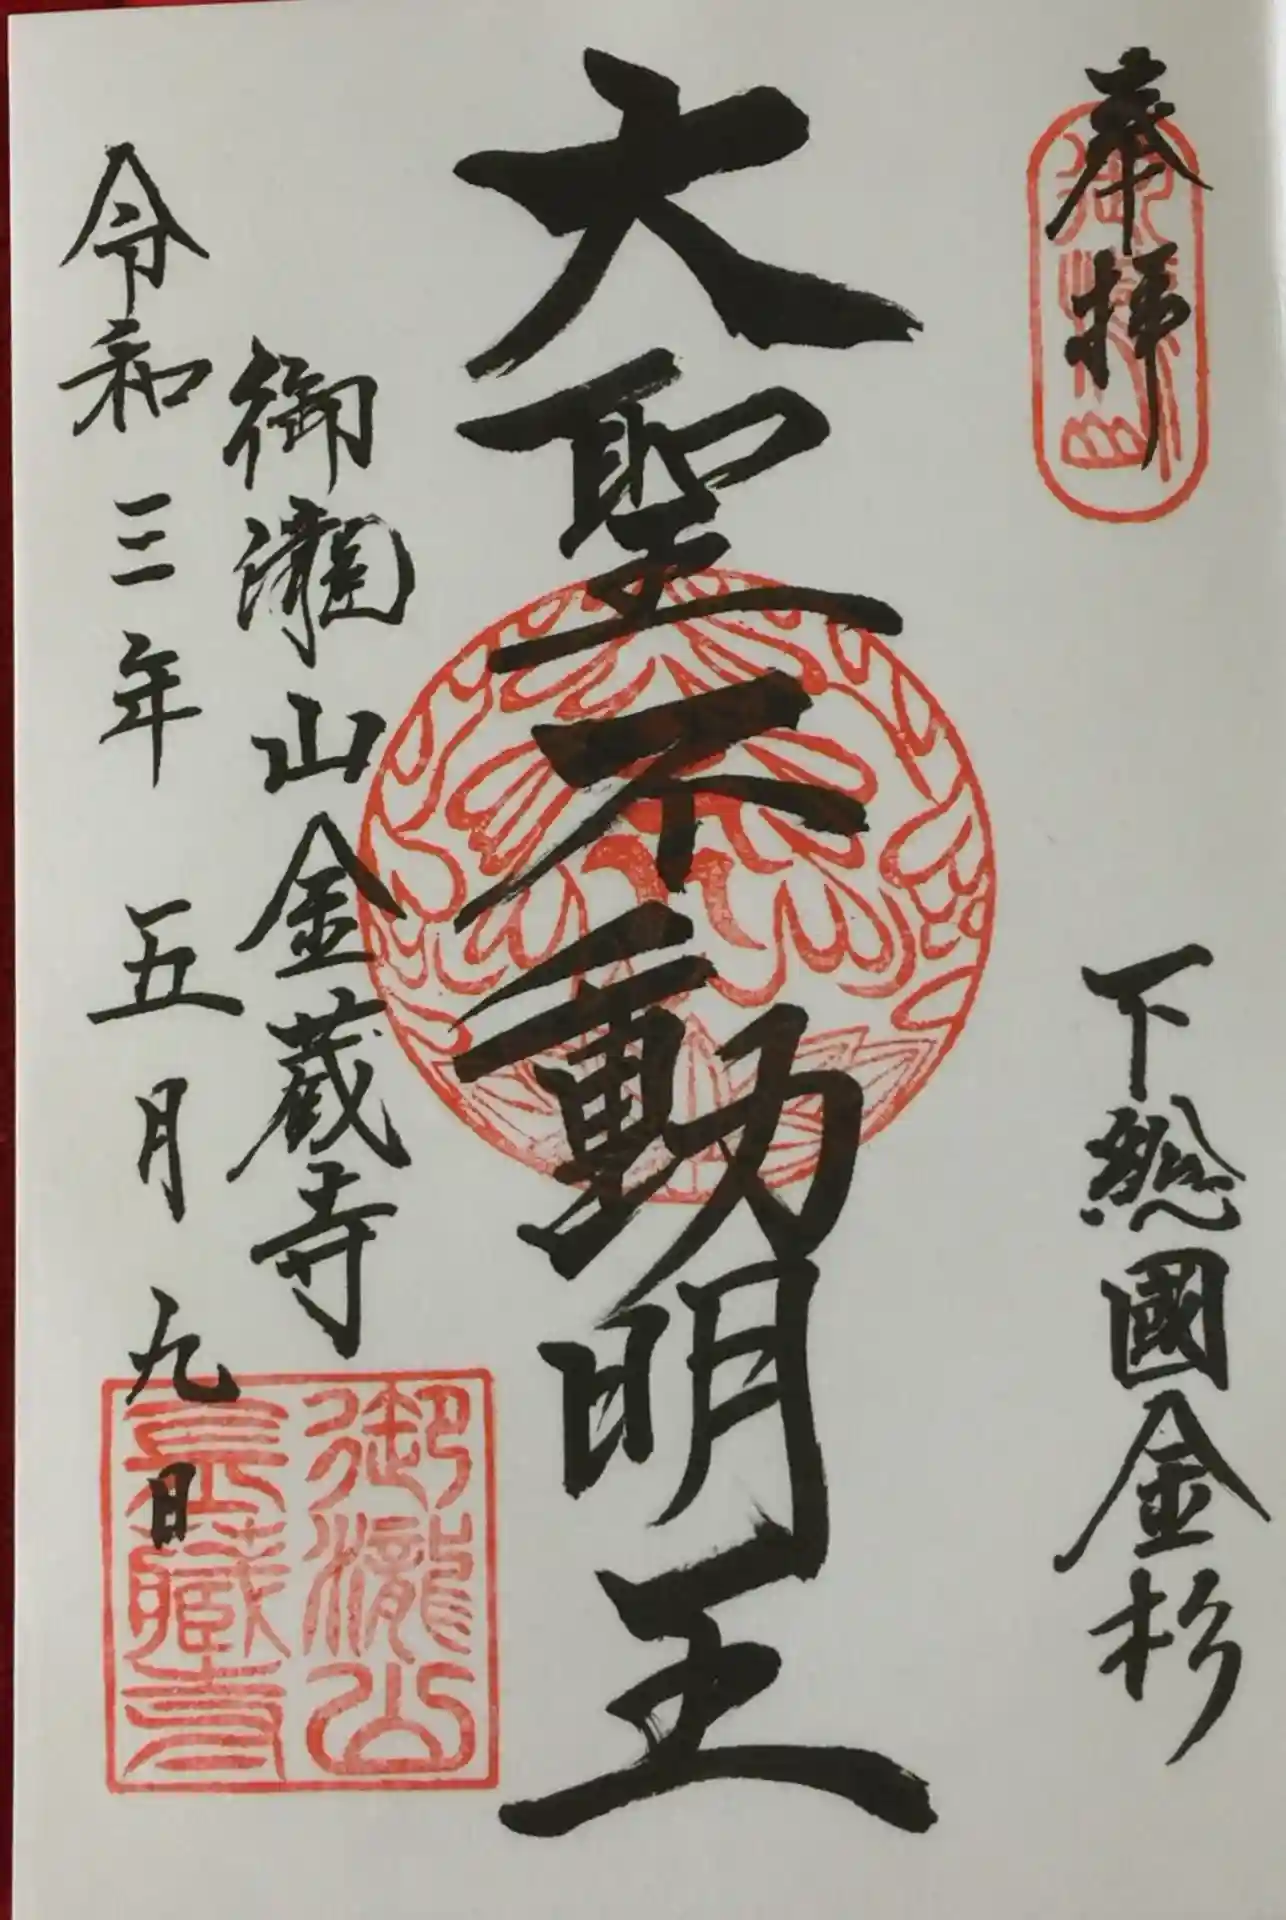 奉拝
下総國金杉
大聖不動明王
御瀧山金蔵寺
令和三年五月九日
御瀧山
御瀧山
金蔵寺